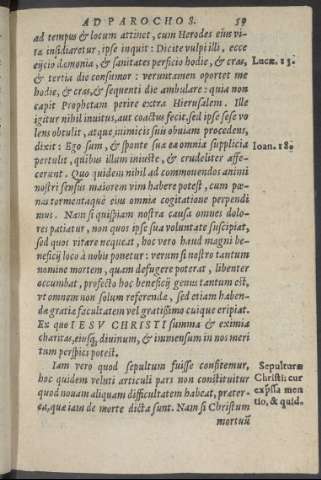 AD PAROCHOS. 59
ad tempus & locum attinet, cum Herodes eius vi-
tæ insidiaretur, ipse inquit: Dicite vulpi illi, ecce
eijcio dæmonia, & sanitates perficio hodie, & cras,
Lucæ. 13.
& tertia die consumor: veruntamen oportet me
hodie, & cras, & sequenti die ambulare: quia non
capit Prophetam perire extra Hierusalem. Ille
igitur nihil inuitus, aut coactus fecit, sed ipse sese vo
lens obtulit, atque inimicis suis obuiam procedens,
dixit: Ego sum, & sponte sua ea omnia supplicia
Ioan. 18.
pertulit, quibus illum iniuste, & crudeliter affe-
cerunt. Quo quidem nihil ad commouendos animi
nostri sensus maiorem vim habere potest, cum pœ-
nas tormentaque eius omnia cogitatione perpendi
mus. Nam si quispiam nostra causa omnes dolo-
res patiatur, non quos ipse sua voluntate suscipiat,
sed quos vitare nequeat, hoc vero haud magni be-
neficij loco à nobis ponetur: verum si nostro tantum
nomine mortem, quam defugere poterat, libenter
occumbat, profecto hoc beneficij genus tantum est,
vt omnem non solum referendæ, sed etiam haben-
dæ gratiæ facultatem vel gratissimo cuique eripiat.
Ex quo IESV CHRISTI summa & eximia
charitas, eiusq́, diuinum, & immensum in nos meri
tum perspici potest.
Iam vero quod sepultum fuisse confitemur,
Sepulturæ
hoc quidem veluti articuli pars non constituitur
Christi: cur
quod nouam aliquam difficultatem habeat, præter-
expressa men
ea, quæ iam de morte dicta sunt. Nam si Christum
tio, & quid.
mortuũ